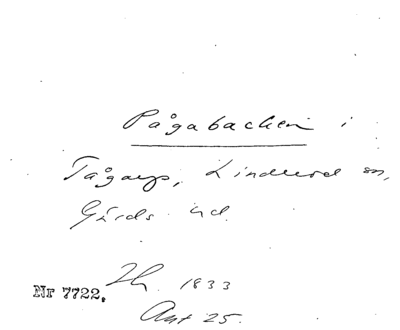 Pågabacken i
Tågarp, Linderöd sn,
Gärds hd.
1833
Nr 7722.
Ant 25.